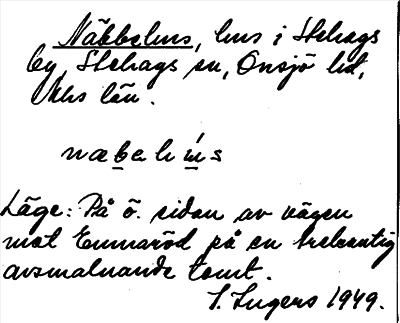 Näbbehus, hus i Stehags
by, Stehags sn, Onsjö hd,
Mhs län.
næbehús
Läge: På ö. sidan av vägen
mot Ennaröd på en trekantig
avsmalnande tomt.
I. Ingers 1949.